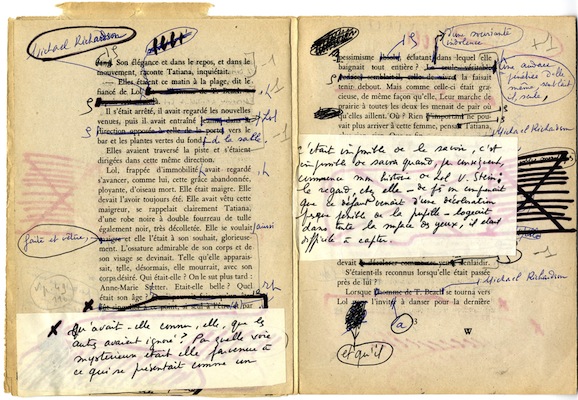 Michael Richardson
Son élégance et dans le repos, et dans le
mouvement, raconte Tatiana, inquiétait.
— Elles étaient ce matin à la plage, dit le
fiancé de Lol
Il s'était arrêté, il avait regardé les nouvelles
venues, puis il avait entraîné Lol
direction opposée à celle de la porte vers le
de la salle.
bar et les plantes vertes du fond
Elles avaient traversé la piste et s'étaient
dirigées dans cette même direction.
Lol, frappée d'immobilité, avait regardé
s'avancer, comme lui, cette grâce abandonnée,
ployante, d'oiseau mort. Elle était maigre. Elle
devait l'avoir toujours été. Elle avait vêtu cette
maigreur, se rappelait clairement Tatiana,
d'une robe noire à double fourreau de tulle
également noir, très décolletée. Elle se voulait
aussi
faite et vêtue,
et elle l'était à son souhait, glorieuse-
ment. L'ossature admirable de son corps et de
son visage se devinait. Telle qu'elle apparais-
sait, telle, désormais, elle mourrait, avec son
corps désiré. Qui était-elle ? On le sut plus tard :
Anne-Marie Stretter. Etait-elle belle ? Quel
était son âge ?
Qu'avait-elle connu, elle, que les
autres avaient ignoré ? Par quelle voie
mystérieuse était-elle parvenue à
ce qui se présentait comme un
d'une souriante
indolence
pessimisme
éclatant dans lequel elle
baignait tout entière ?
Une audace
pénétrée d'elle-
même semblait-il,
seule,
la faisait
tenir debout. Mais comme celle-ci était gra-
cieuse, de même façon qu'elle. Leur marche de
prairie à toutes les deux les menait de pair où
qu'elles aillent. Où ? Rien ne pou-
vait plus arriver à cette femme, pensa Tatiana,
Michael Richardson
c'était impossible de le savoir, c'est
impossible de savoir quand, par conséquent,
commence mon histoire de Lol V. Stein :
le regard, chez elle – de près on comprenait
que ce défaut venait d'une décoloration
presque pénible de la pupille – logeait
dans toute la surface des yeux, il était
difficile à capter.
S'étaient-ils reconnus lorsqu'elle était passée
près de lui ?
Michael Richardson
Lorsque l'homme de T. Beach se tourna vers
Lol l'invita à danser pour la dernière
a
W
et qu'il